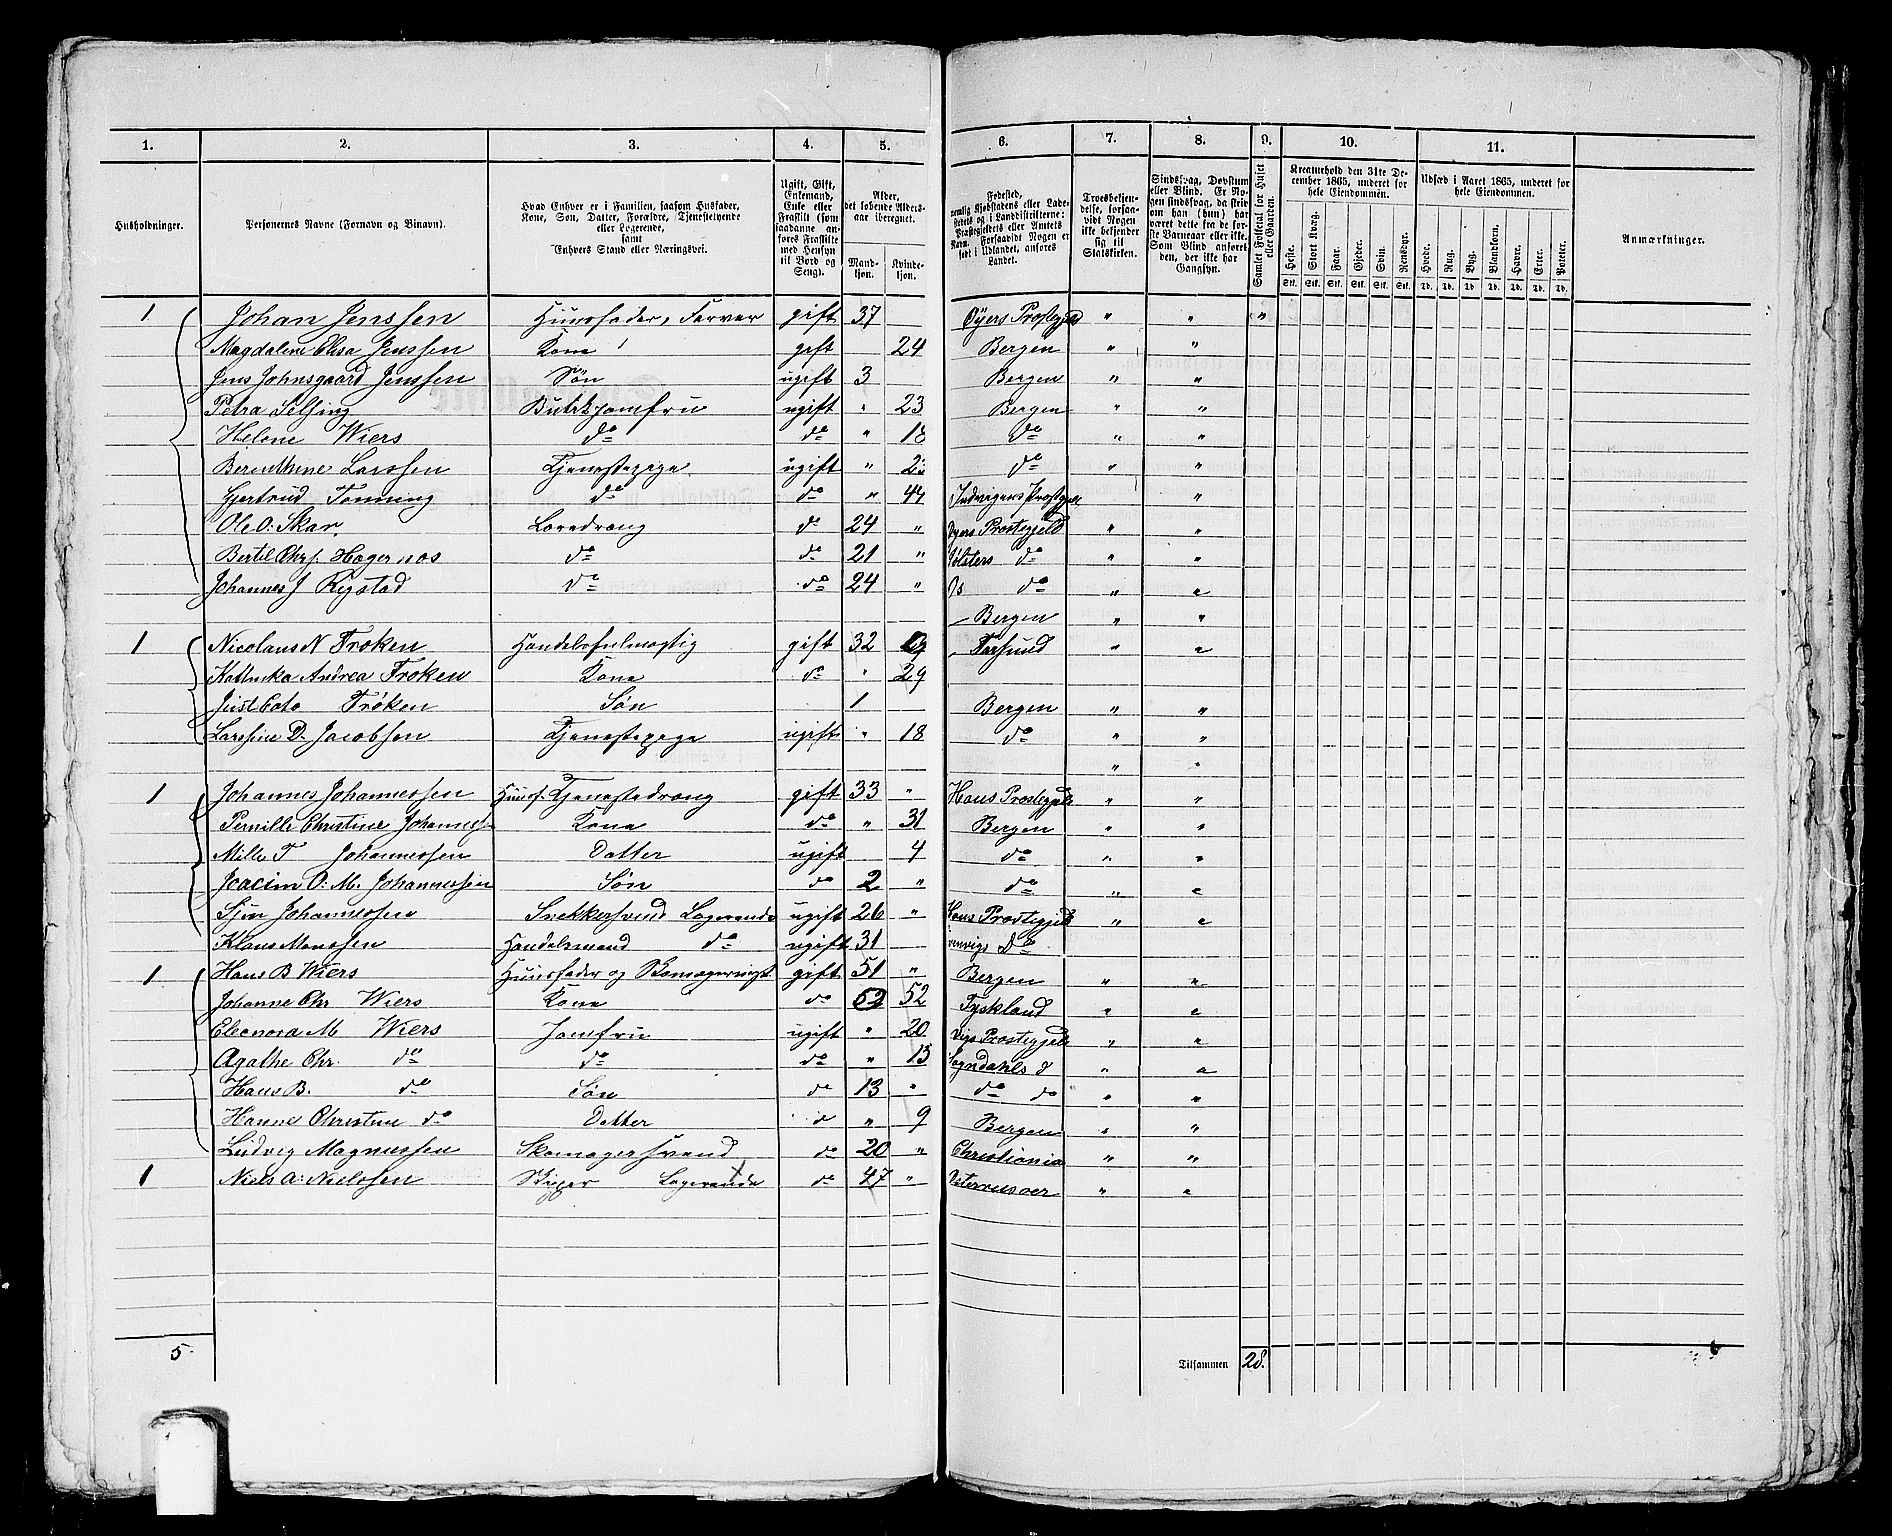 1. 2. 3. 4. 5. 6. 7. 8. 9. 10. 11.
Husholdninger.
Personernes Navne (Fornavn og Binavn).
Hvad Enhver er i Familien, saasom Husfader, Kone, Søn, Datter, Forældre, Tjenestetyende eller Logerende, samt Enhvers Stand eller Næringsvei.
Ugift, Gift, Enkemand, Enke eller Fraskilt (som saadanne anføres Fraskilte med Hensyn til Bord og Seng).
Alder, det løbende Aldersaar iberegnet.
Mandkjøn. Kvindekjøn.
Fødested, nemlig Kjøbstadens eller Ladestedets og i Landdistrikterne: Præstegjeldets eller Amtets Navn. Forsaavidt Nogen er født i Udlandet, anføres Landet.
Troesbekjendelse, forsaavidt Nogen ikke bekjender sig til Statskirken.
Sindssvag, Døvstum eller Blind. Er Nogen sindssvag, da skrives om han (hun) har været dette fra de første Barneaar eller ikke. Som Blind anføres den, der ikke har Gangsyn.
Samlet Folketal for Huset eller Gaarden.
Kreaturhold den 31te December 1865, underet for hele Eiendommen.
Heste. Stort Kvæg. Faar. Gjeder. Svin. Rensdyr.
Stk. Stk. Stk. Stk. Stk. Stk.
Udsæd i Aaret 1865, underet for hele Eiendommen.
Hvede. Rug. Byg. Blandkorn. Havre. Erter. Poteter.
Td. Td. Td. Td. Td. Td. Td.
Anmærkninger.
1 Johan Jenssen Huusfader, Farver gift 37 Öyers Prostegjeld " " "
Magdalene Elisa Jenssen Kone gift 24 Bergen " "
Jens Johnsgaard Jenssen Søn ugift 3 Bergen " "
Petra Selfing Butikjomfru ugift " 23 Bergen " "
Helene Wiers do do " 18 do " "
Berenthine Larssen Tjenestepige ugift " do " "
Gjertrud Tonning do do " 44 Indvigens Prostgjel "
Ole O. Skar Loredreng do 24 " Öyers Prostegjeld " "
Bertil Chrs. Hogernos do do 21 " Jølsters do " "
Johannes J Rystad do do 24 " Os do " "
Bergen " "
1 Nicolaus N Froken Handelsfuldmægtig gift 32 Farsund " "
Andrea Froken Kone do " 29
Just Froken Søn 1 Bergen " "
Larssine D. Jacobsen Tjenestepige ugift " 18 do " "
" "
1 Johannes Johannessen Huusf. Tjenestedreng gift 33 " Hous Prostegjeld " "
Pernille Christine Johanness Kone do " 31 Bergen " "
Mille T Johannessen Datter ugift 4 do " "
Joacim O. M. Johannessen Søn do 2 " do " "
Johannessen Snekkersvend Logerende ugift 26 " Hous Prostegjeld " "
Klaus Monssen Handelsmand do ugift 31 do
1 Hans B Wiers Huusfader og Skomagersvigt gift 51 " Bergen " "
Johanne Chr Wiers Kone do 52 Tyskland " "
Eleonora M Wiers Jomfru ugift " 20 Vigs Prostegjeld " "
Agathe Chr. do do do " 13 Sogndahls d " "
Hans B. do Søn do 13 " do do " "
Hanna Christine do Datter d " 9 Bergen " "
Ludvig Magnussen Skomagersvend do 20 " Christiania " "
1 Niels A. Nielssen Skipper Logerende do 47 " Østerrusoer " "
5
Tilsammen 28.